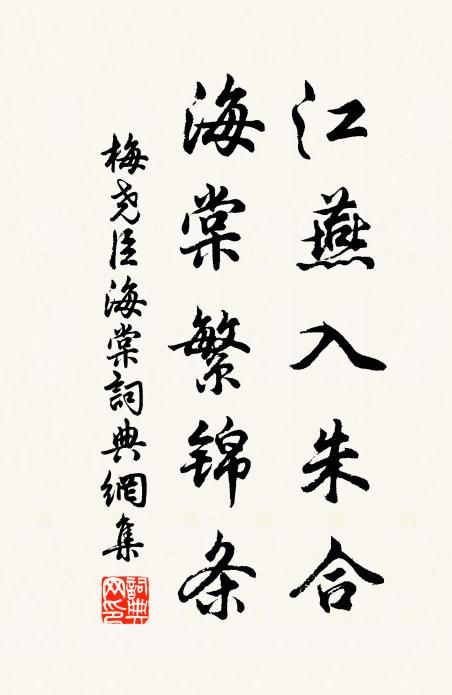 江燕入朱合
海棠繁锦条
梅尧臣海棠詞典網集
詞典網印